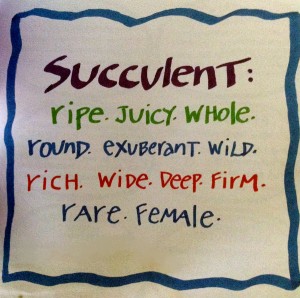 SUCCULENT:
ripe. JUICY. WHOLE.
rOUND. exUBeranT. WILD.
rICH. WIDe. DeeP. FIrM.
rare. FeMaLe.